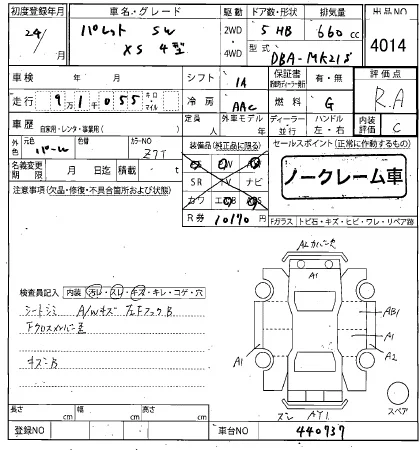 初度登録年月 車名・グレード 駆動 ドア数・形状 排気量 出品NO
24/ 月 パレット SW 2WD 5 HB 660 cc 4014
XS 4型 4WD 型式 DBA-MK21S
車検 年 月 シフト IA 保証書 有・無 評価点
走行 9万1千055 キロ マイル 冷房 AAC 燃料 G R.A
車歴 自家用・レンタ・事業用( ) 定員 人 外車モデル 年 ディーラー 並行 ハンドル 左・右 内装評価 C
外 元色 パール 色替 カラーNO Z7T 装備品(純正品に限る) セールスポイント(正常に作動するもの)
名義変更期限 月 日迄 積載 t SR TV ナビ ノークレーム車
注意事項(欠品・修復・不具合箇所および状態) カワ
R券 10170 円 Fガラス トビ石・キズ・ヒビ・ワレ・リペア跡
A1
検査員記入 内装 汚レ・スレ・キズ・キレ・コゲ・穴
シートシミ A/Wキズ 左Fフック B
AB1
A1
A1
A2
キズーB
スペア
長さ cm 幅 cm 高さ cm
AY1
登録NO 車台NO 440737